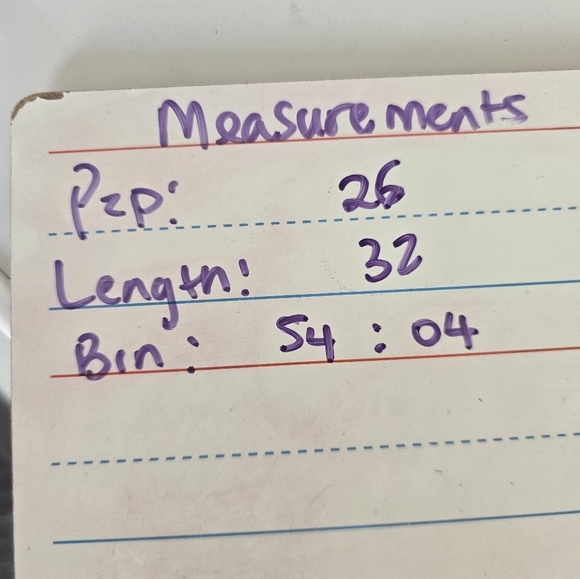 Measurements
P2P: 26
Length: 32
Bin: 54 : 04